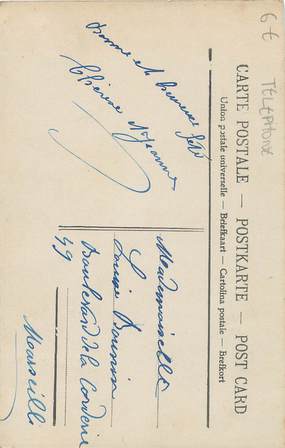 6 € TELEPHONE
CARTE POSTALE — POSTKARTE — POST CARD
Union postale universelle — Briefkaart — Cartolina postale — Brefkort
Bonne et heureuse fête
Thérèse Jeanne
Mademoiselle
Louise Bounin
Boulevard de la Corderie
49
Marseille